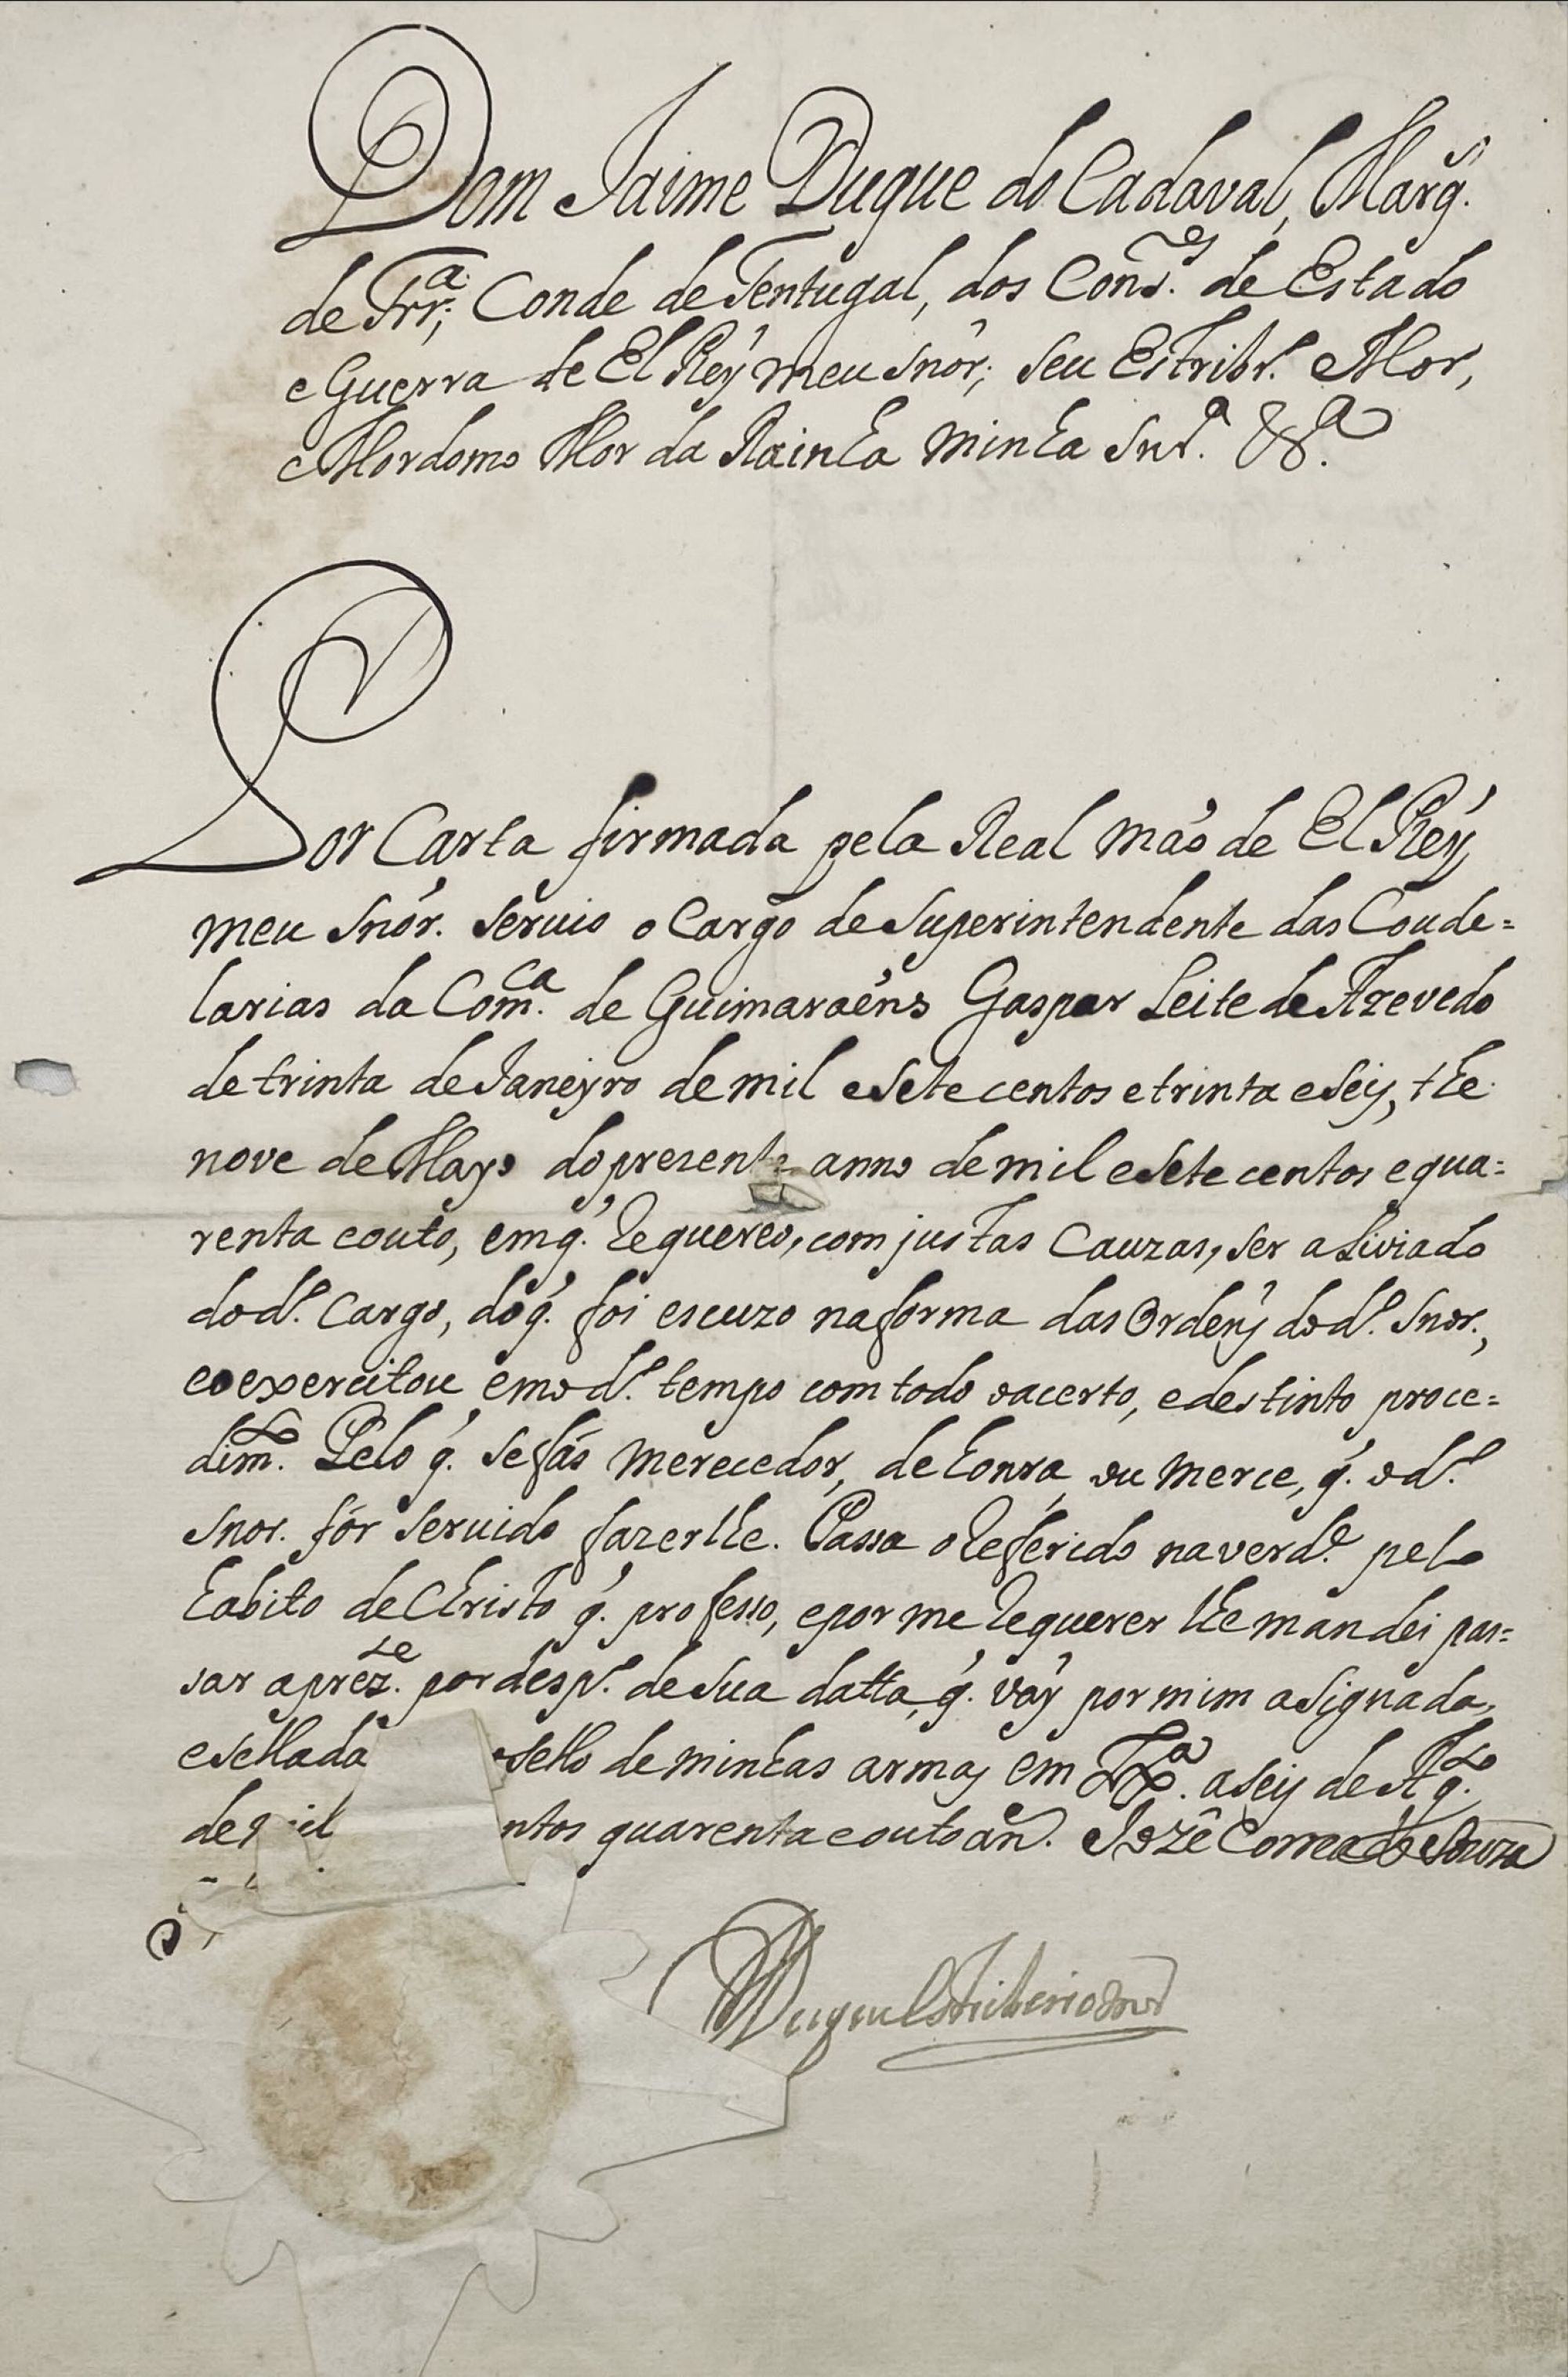 Dom Jaime Duque do Cadaval, Marq.s
de Frr.a; Conde de Tentugal, dos Cons.os de Estado
e Guerra de El Rey meu Snor; seu Estribr.o Mor,
e Mordomo Mor da Rainha minha Snr.a &.a
Por Carta firmada pela Real mão de El Rey
meu Snor. seruio o Cargo de Superintendente das Coude=
larias da Com.ca de Guimaraens Gaspar Leite de Azevedo
de trinta de Janeyro de mil e sete centos e trinta e seis, thé
nove de Mayo do presente anno de mil e sete centos e qua=
renta e outo, em q. requereo, com justas Cauzas, ser aliviado
do d.o Cargo, do q. foi escuzo na forma das Ordens do d.o Snor.,
e o exercitou em o d.o tempo com todo o acerto, e destinto proce=
dim.to Pelo q. se fás merecedor, de honra, ou merce, q. o d.o
Snor. fór seruido fazerlhe. Passa o referido na verd.e pelo
habito de Christo q. professo, e por me requerer lhe mandei pas=
sar a prez.te por desp.o de sua datta, q. vay por mim asignada,
e sellada o sello de minhas armas em Lx.a a seis de Ag.to
de mil ntos quarenta e outo an. Jozê Correa de Souza
Duque Estribeiro Mor